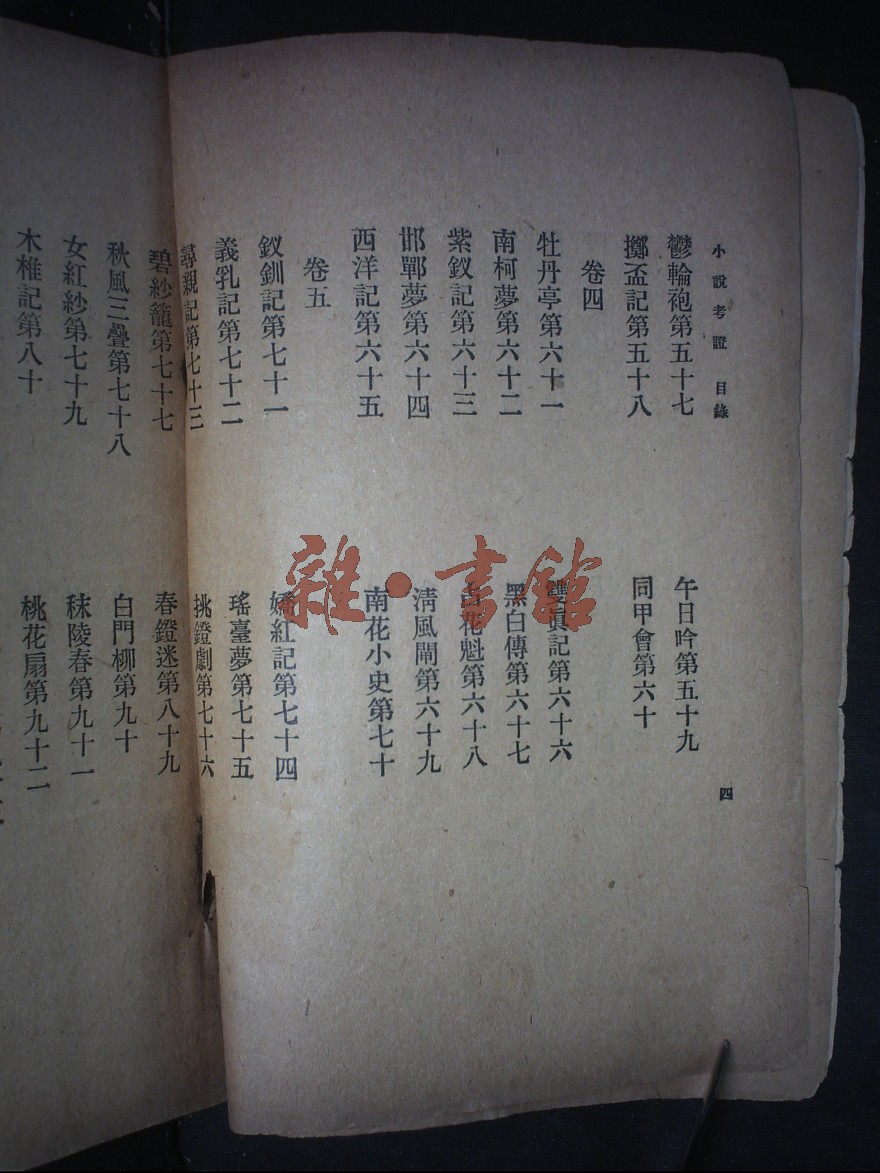 小說考證 目錄
四
鬱輪袍第五十七
午日吟第五十九
擲盃記第五十八
同甲會第六十
卷四
牡丹亭第六十一
記第六十六
南柯夢第六十二
黑白傳第六十七
紫釵記第六十三
花魁第六十八
邯鄲夢第六十四
清風閘第六十九
西洋記第六十五
南花小史第七十
卷五
釵釧記第七十一
嬌紅記第七十四
義乳記第七十二
瑤臺夢第七十五
尋親記第七十三
挑鐙劇第七十六
碧紗籠第七十七
春鐙迷第八十九
秋風三疊第七十八
白門柳第九十
女紅紗第七十九
秣陵春第九十一
木椎記第八十
桃花扇第九十二
雜·書館